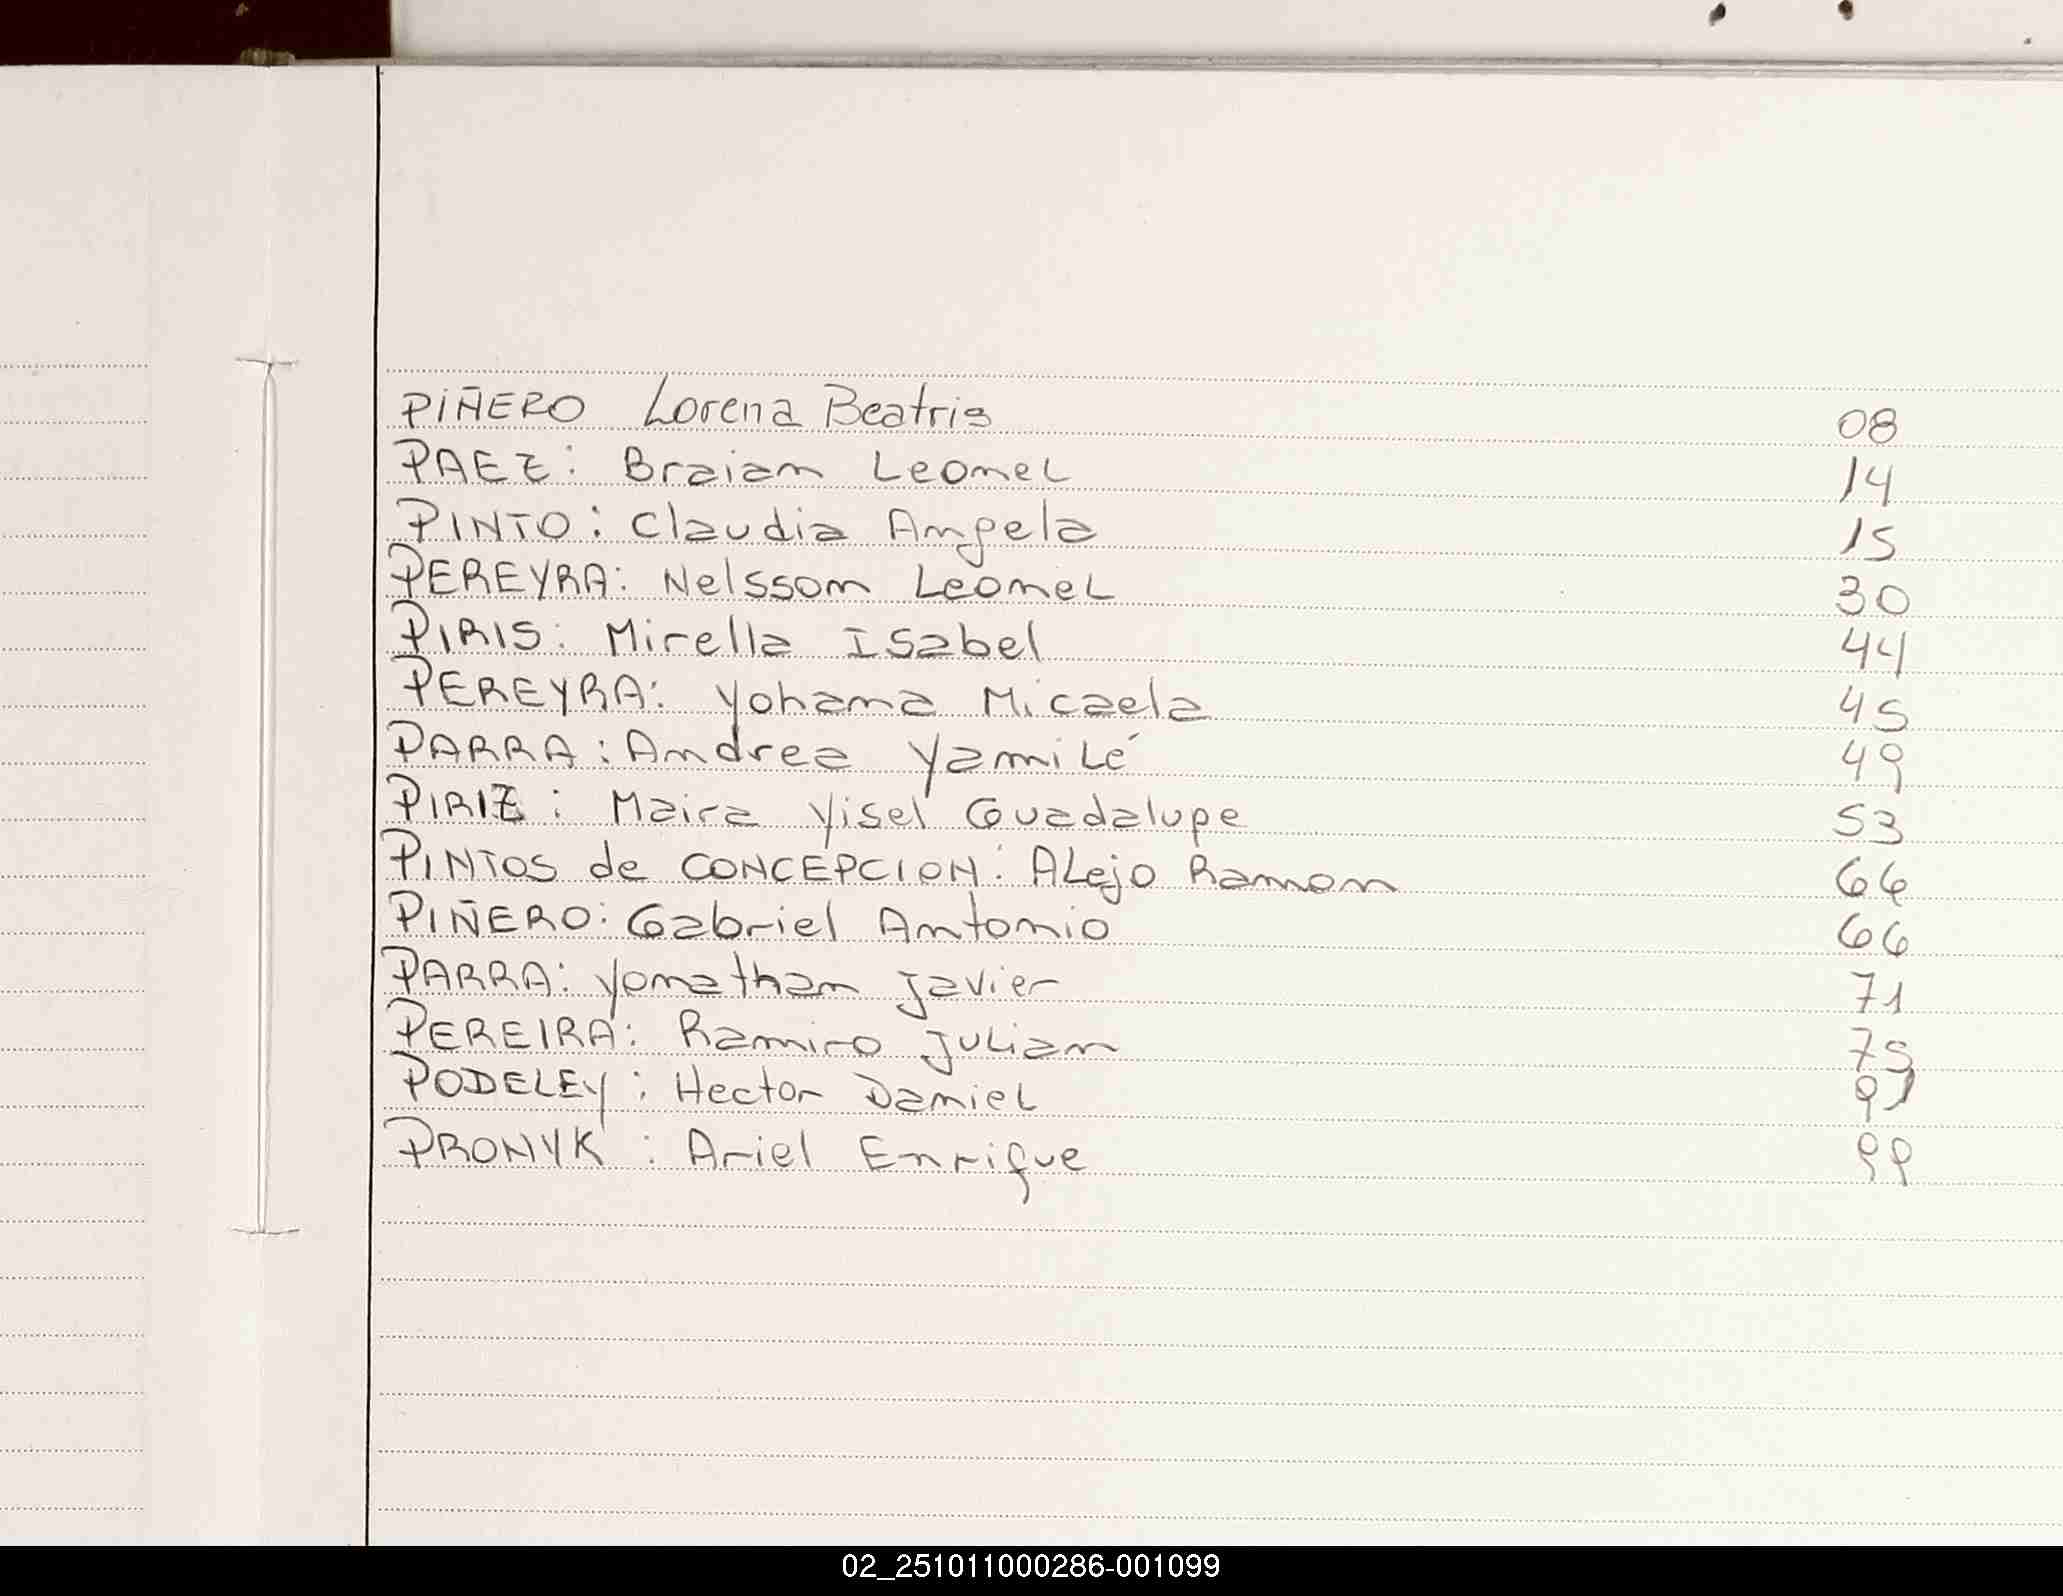 PIÑERO Lorena Beatris 08
PAEZ: Braian Leonel 14
PINTO: Claudia Angela 15
PEREYRA: Nelsson Leonel 30
PIRIS: Mirella Isabel 44
PEREYRA: Yohana Micaela 45
PARRA: Andrea Yamilé 49
PIRIZ: Maira Yisel Guadalupe 53
PINTOS de CONCEPCION: Alejo Ramon 64
PIÑERO: Gabriel Antonio 66
PARRA: Yonathan Javier 71
PEREIRA: Ramiro Julian 75
PODELEY: Hector Daniel 91
PRONYK: Ariel Enrique 99
02_251011000286-001099